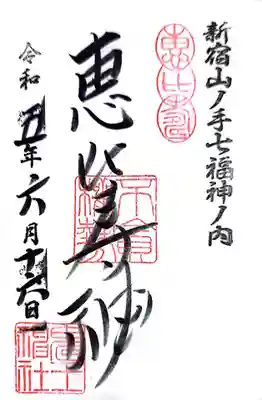 新宿山ノ手七福神ノ内
恵比寿
恵比寿神
令和五年六月十六日